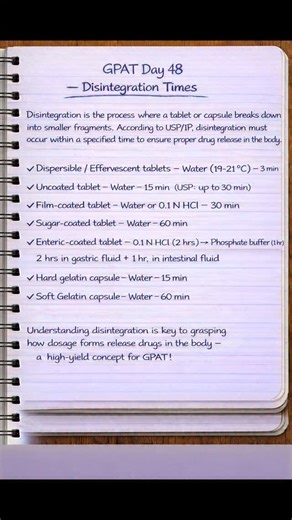 GPAT Day 48
— Disintegration Times
Disintegration is the process where a tablet or capsule breaks down
into smaller fragments. According to USP/IP, disintegration must
occur within a specified time to ensure proper drug release in the body.
✓ Dispersible / Effervescent tablets – Water (19-21 °C) – 3 min
✓ Uncoated tablet – Water – 15 min (USP: up to 30 min)
✓ Film-coated tablet – Water or 0.1 N HCl – 30 min
✓ Sugar-coated tablet – Water – 60 min
✓ Enteric-coated tablet – 0.1 N HCl (2 hrs) → Phosphate buffer (1 hr)
2 hrs in gastric fluid + 1 hr, in intestinal fluid
✓ Hard gelatin capsule – Water – 15 min
✓ Soft Gelatin capsule – Water – 60 min
Understanding disintegration is key to grasping
how dosage forms release drugs in the body –
a high-yield concept for GPAT!